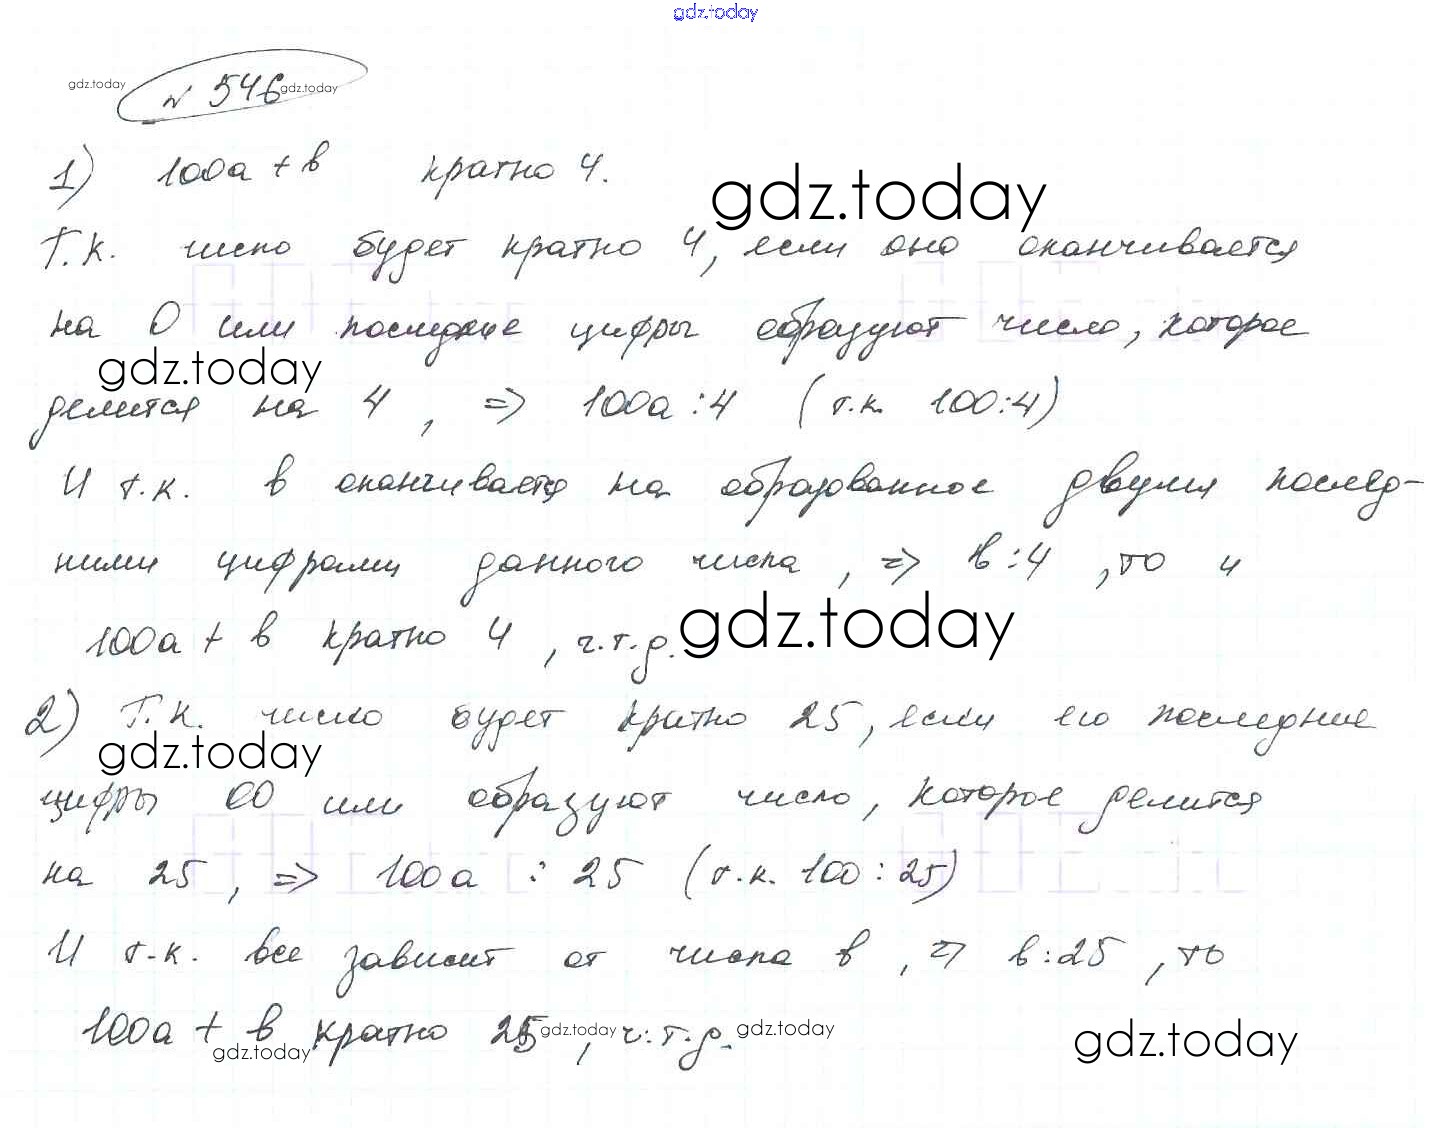 gdz.today
gdz.today № 546 gdz.today
1) 100а + в кратно 4.
gdz.today
Т.к. число будет кратно 4, если оно оканчивается
на 0 или последние цифры образуют число, которое
gdz.today
делится на 4, => 100а : 4 (т.к. 100:4)
И т.к. в оканчивается на образованное двумя послед-
ними цифрами данного числа, => в : 4, то и
100а + в кратно 4, ч.т.д. gdz.today
2) Т.к. число будет кратно 25, если его последние
gdz.today
цифры 00 или образуют число, которое делится
на 25, => 100а : 25 (т.к. 100 : 25)
И т.к. все зависит от числа в, => в : 25, то
100а + в кратно 25, ч.т.д.
gdz.today gdz.today gdz.today gdz.today